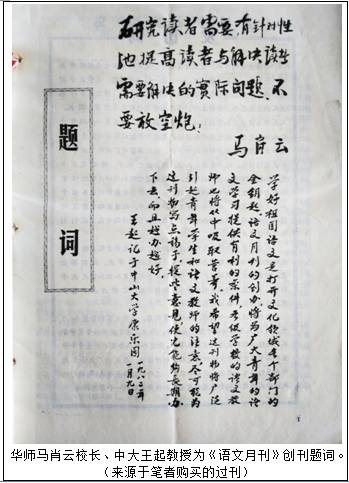 研究读者需要有针对性
地提高读者与解决读者
需要解决的实际问题,不
要放空炮!
马肖云
题词
学好祖国语文是打开文化领域各个部门的
金钥匙。语文月刊的创办,将为广大青年的语
文学习提供有利的条件,各级学校的语文教
师也将从中吸取营养。我希望这刊物将广泛
引起青年学生和语文教师的注意,尽可能为
这刊物写点稿子,提些意见,使它能够长期办
下去,而且越办越好。
王起记于中山大学康乐园
一九八二年
一月九日
华师马肖云校长、中大王起教授为《语文月刊》创刊题词。
(来源于笔者购买的过刊)